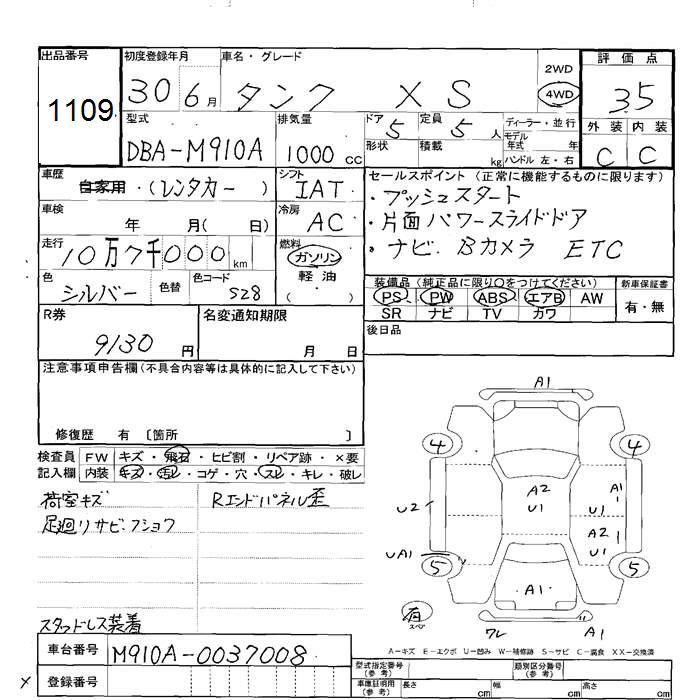 出品番号 初度登録年月 車名・グレード 2WD 評価点
1109 30 6月 タンク XS 4WD 35
型式 排気量 ドア 定員 ディーラー・並行 外装 内装
DBA-M910A 1000cc 5 5人 モデル年式 年 C C
形状 積載 kg ハンドル 左・右
車歴 シフト セールスポイント (正常に機能するものに限ります)
自家用・(レンタカー) IAT ・プッシュスタート
車検 冷房 ・片面パワースライドドア
年 月( 日) AC ・ナビ. Bカメラ ETC
走行 燃料
10万7千000km ガソリン
軽油
( )
色 色替 色コード 装備品 (純正品に限り○をつけてください) 新車保証書
シルバー 528 PS PW ABS エアB AW 有・無
SR ナビ TV カワ
R券 名変通知期限 後日品
9130円 月 日
注意事項申告欄(不具合内容等は具体的に記入して下さい)
修復歴 有 〔箇所 〕
検査員 FW キズ・飛石・ヒビ割・リペア跡・×要
記入欄 内装 キズ・汚レ・コゲ・穴・スレ・キレ・破レ
荷室キズ Rエンドパネル歪
足廻リサビ.フショク
スタッドレス装着
A1
4 4
A2 A1
U2 U1 U1
A2
UA1 U1
5 5
A1
有
スペア
ワレ A1
A-キズ E-エクボ U-凹み W-補修跡 S-サビ C-腐食 XX-交換済
車台番号 M910A-0037008
型式指定番号(参考) 類別区分番号(参考)
× 登録番号 車庫証明用(参考) 長さ cm 幅 cm 高さ cm